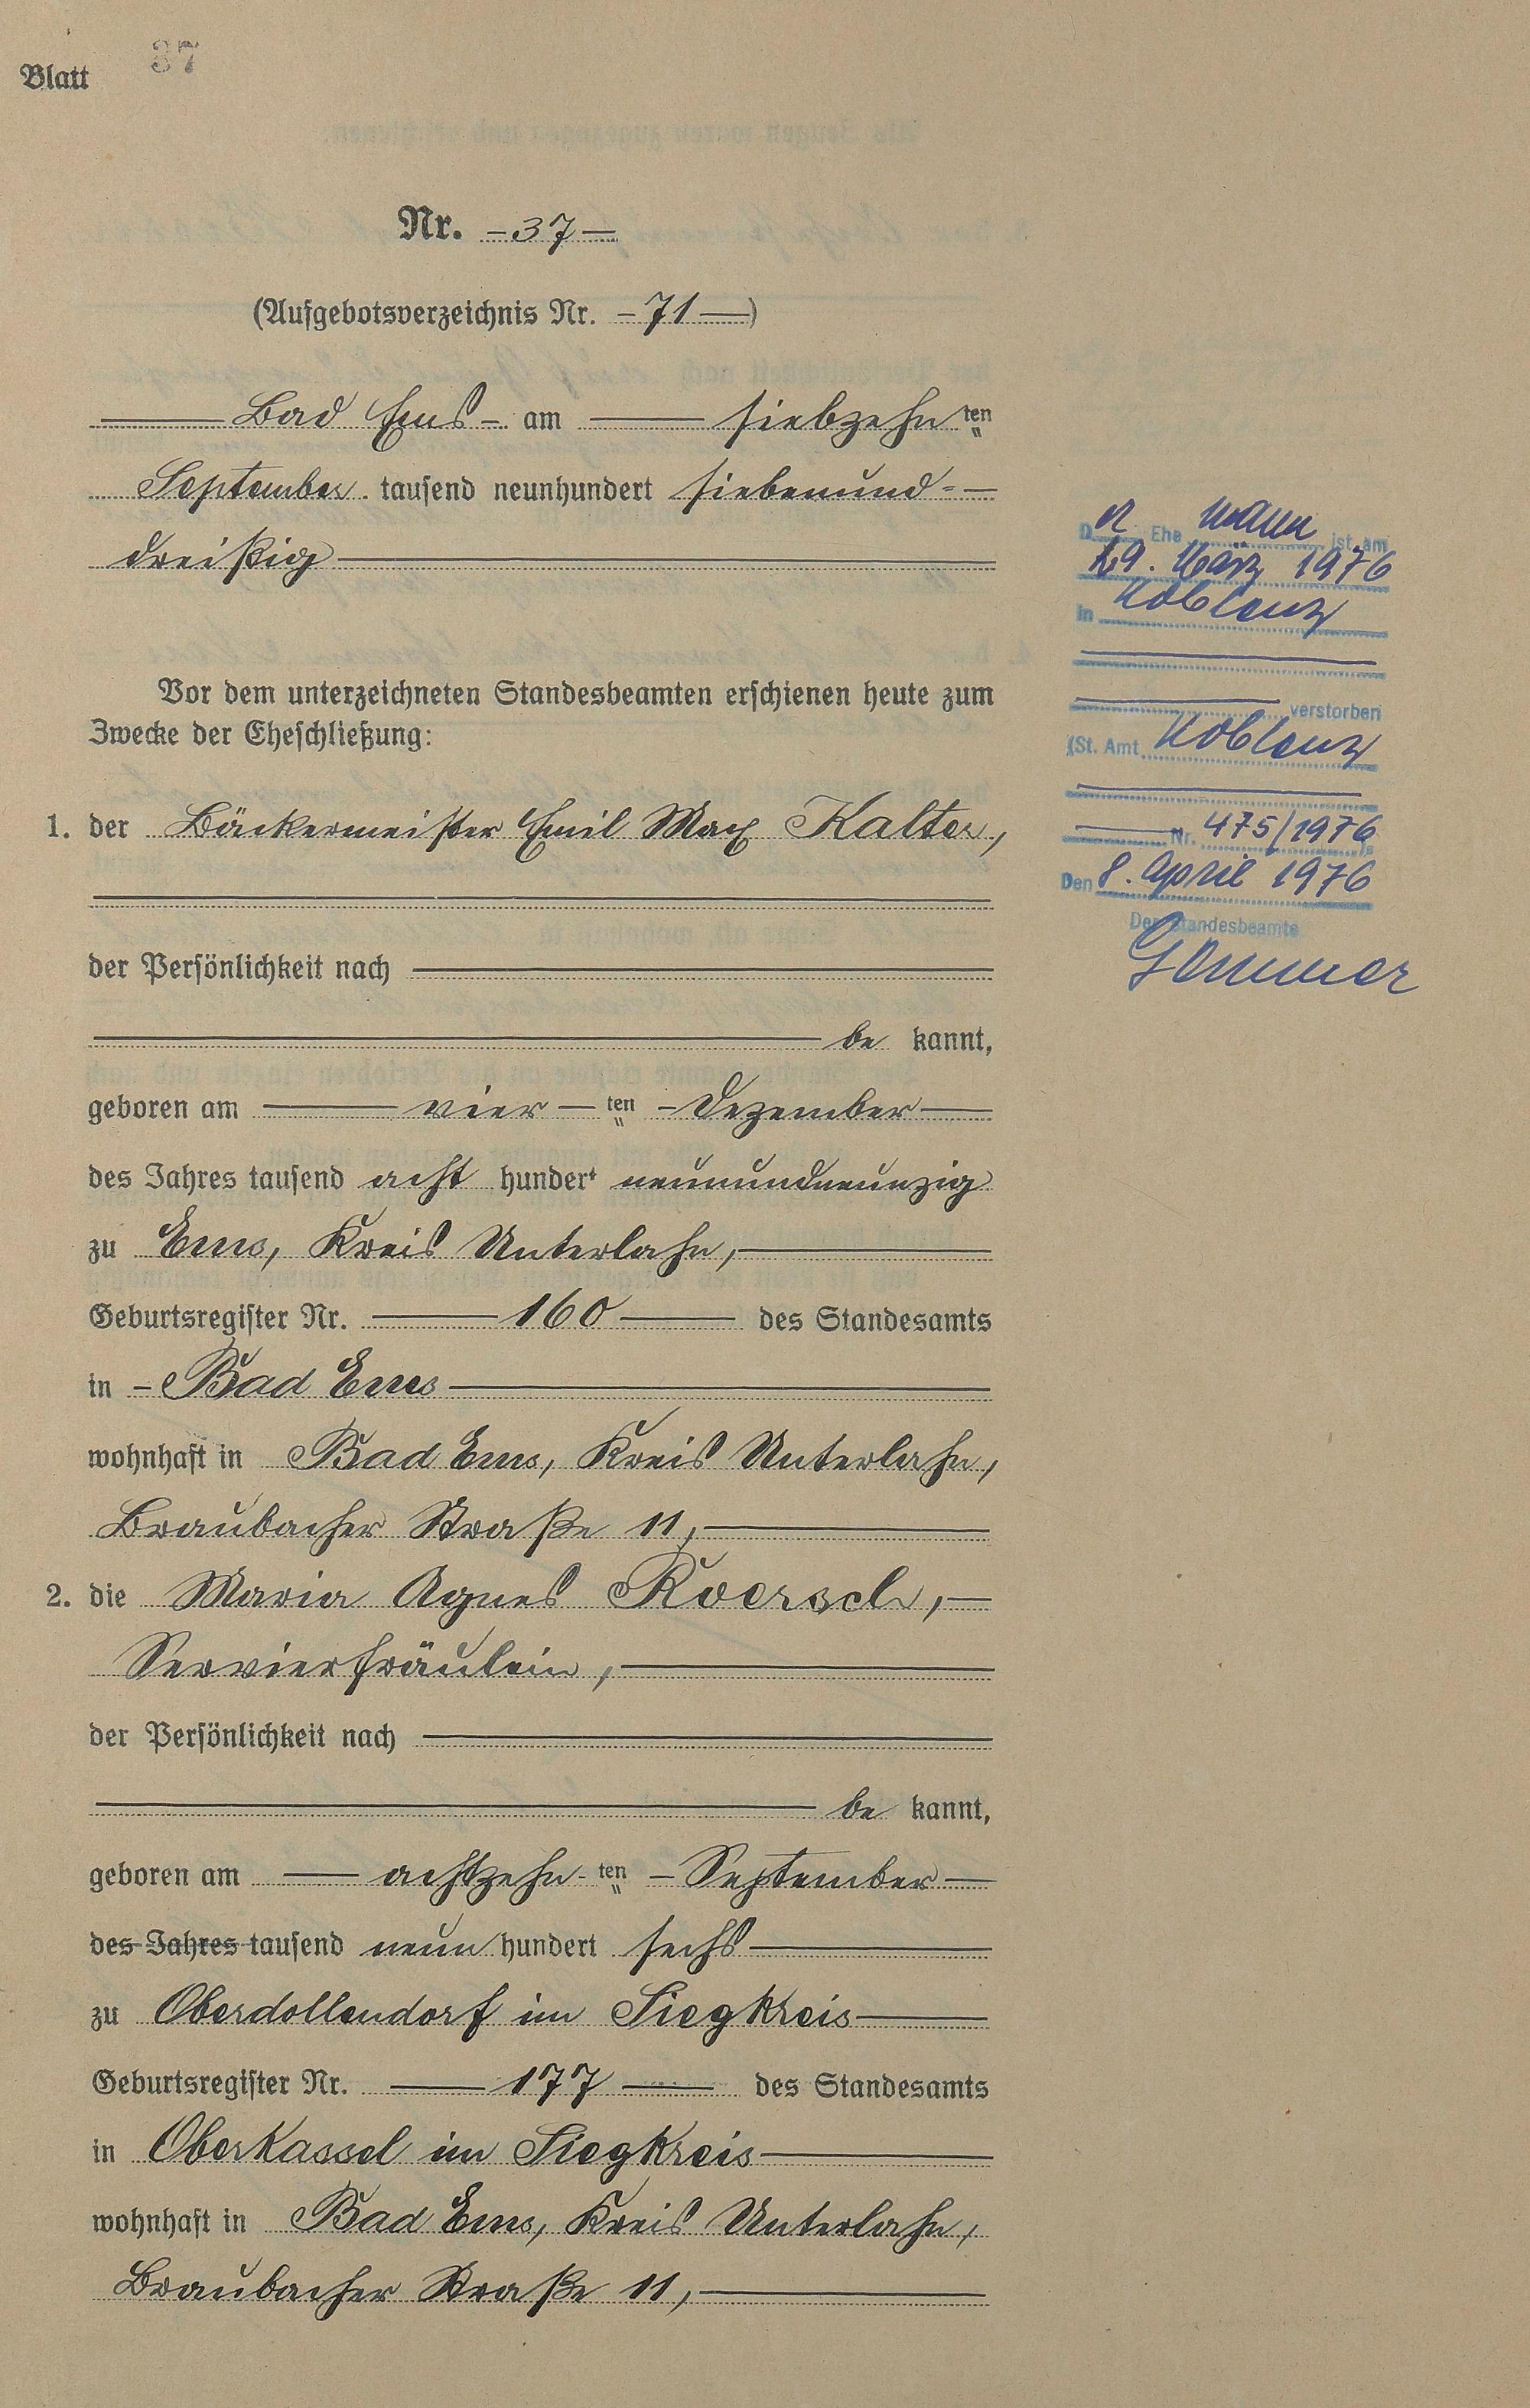 Blatt 37
Nr. - 37 -
(Aufgebotsverzeichnis Nr. - 71 -)
Bad Ems - am siebzehn ten
September tausend neunhundert siebenund-
dreißig
Vor dem unterzeichneten Standesbeamten erschienen heute zum
Zwecke der Eheschließung:
1. der Bäckermeister Emil Max Kalter,
der Persönlichkeit nach
be kannt,
geboren am vier - ten - Dezember
des Jahres tausend acht hundert neunundneunzig
zu Ems, Kreis Unterlahn,
Geburtsregister Nr. 160 des Standesamts
in - Bad Ems
wohnhaft in Bad Ems, Kreis Unterlahn,
Braubacher Straße 11,
2. die Maria Agnes Roersch,
Servierfräulein,
der Persönlichkeit nach
be kannt,
geboren am achtzehn - ten - September
des Jahres tausend neun hundert sechs
zu Oberdollendorf im Siegkreis
Geburtsregister Nr. 177 des Standesamts
in Oberkassel im Siegkreis
wohnhaft in Bad Ems, Kreis Unterlahn,
Braubacher Straße 11,
D er Ehe mann ist am
29. März 1976
in Koblenz
verstorben
(St. Amt Koblenz
Nr. 475/1976
Den 8. April 1976
Der Standesbeamte